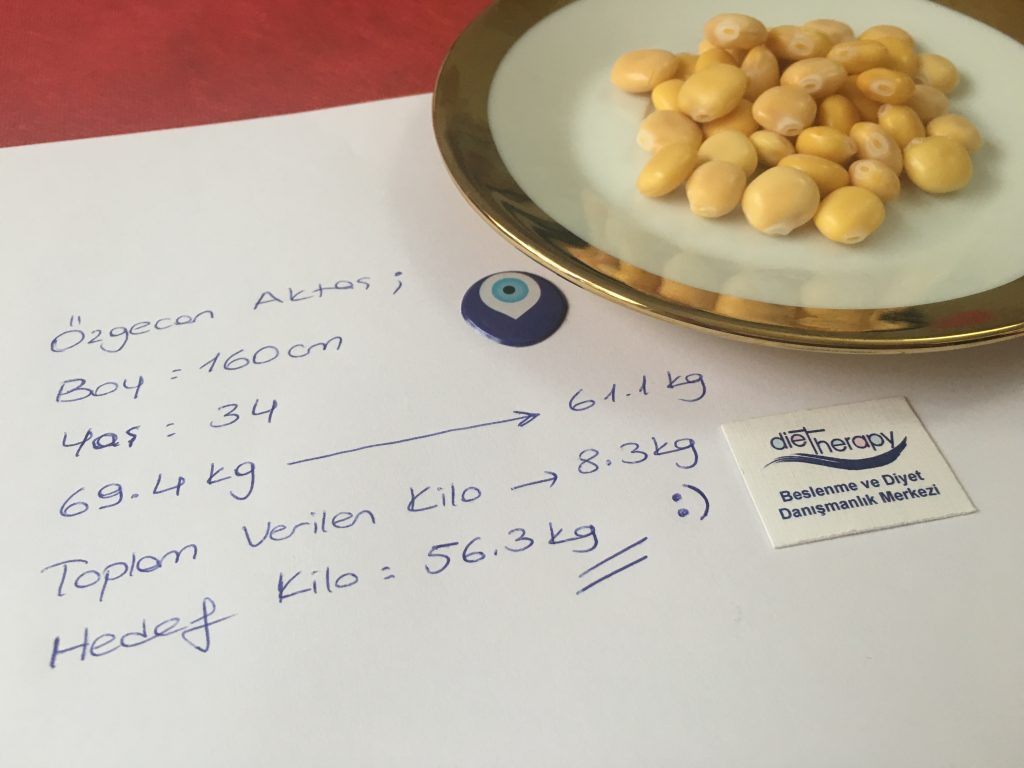 Özgecan Aktaş ;
Boy = 160 cm
Yaş : 34
69.4 kg → 61.1 kg
Toplam Verilen Kilo → 8.3 kg
:)
Hedef Kilo = 56.3 kg
dieTherapy
Beslenme ve Diyet
Danışmanlık Merkezi